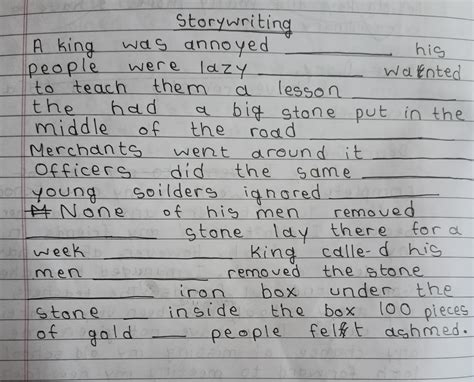 Storywriting
A king was annoyed __________ his
people were lazy __________ wanted
to teach them a lesson __________
the had a big stone put in the
middle of the road
Merchants went around it ______
Officers did the same ________
young soilders ignored ________
None of his men removed
__________ stone lay there for a
week ________ king calle-d his
men ________ removed the stone
__________ iron box under the
stone ___ inside the box 100 pieces
of gold ___ people felt ashmed.